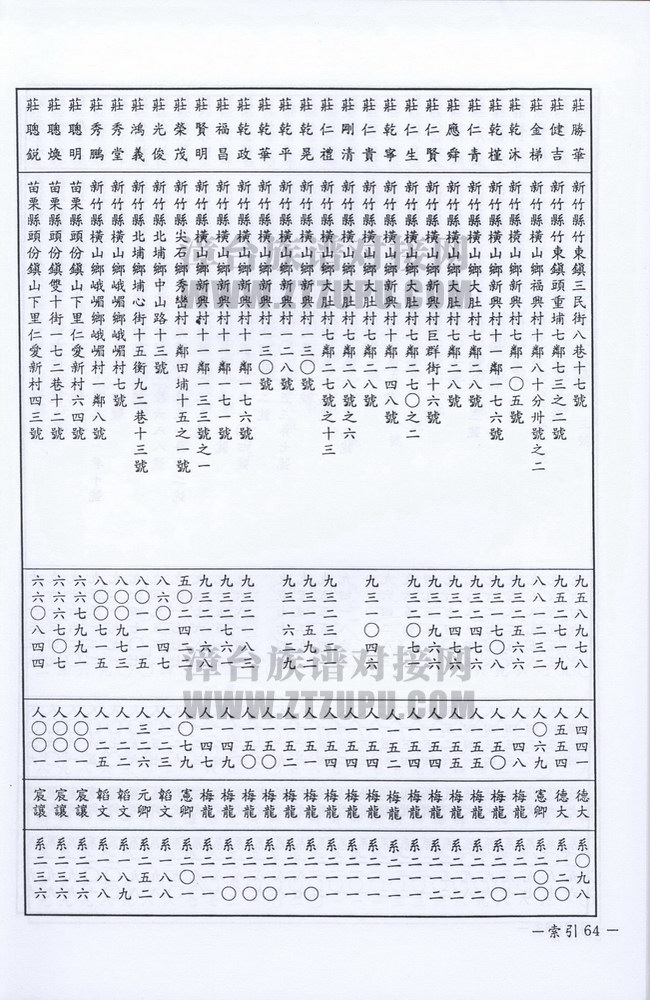 莊勝華 新竹縣竹東鎮三民街八巷十七號 九五八九七八 人四四一 德大 系〇九八
莊健吉 新竹縣竹東鎮頭重埔七鄰七三之二號 人五五四 德大 系一二〇
莊金梯 新竹縣橫山鄉福興村十鄰八十分卅號之二 八八一二三二 人〇六九 憲卿 系二〇〇
莊乾沐 新竹縣橫山鄉新興村七鄰一〇五號 九三二五六六 人一四八 梅龍 系二一一
莊乾槿 新竹縣橫山鄉新興村十一鄰一七六號 九三一七〇八 人一五〇 梅龍 系二一〇
莊仁青 新竹縣橫山鄉大肚村七鄰二八號 人一五四 梅龍 系二一二
莊應舜 新竹縣橫山鄉大肚村七鄰二八號 九三二四七六 人一五五 梅龍 系二一二
莊仁賢 新竹縣橫山鄉新興村巨群街十六號 九三一九六六 人一五四 梅龍 系二一二
莊仁生 新竹縣橫山鄉大肚村七鄰二七〇之二 九三二〇七一 人一五二 梅龍 系二一一
莊乾寧 新竹縣橫山鄉新興村十鄰一四八號 梅龍 系二一一
莊仁貴 新竹縣橫山鄉大肚村七鄰二八號 九三一〇四六 人一五四 梅龍
莊剛清 新竹縣橫山鄉大肚村七鄰二八號之六 人一五五 梅龍
莊仁禮 新竹縣橫山鄉大肚村七鄰二七號之十三 九三二三一一 人一五四 梅龍
莊乾晃 新竹縣橫山鄉新興村一三〇號 九三一五九二 人一五一 梅龍 系二一〇
莊乾平 新竹縣橫山鄉新興村一二八號 九三一六二九 人一五二 梅龍 系二一一
莊乾華 新竹縣橫山鄉新興村一三〇號 人一五〇 梅龍 系二一〇
莊乾政 新竹縣橫山鄉新興村十一鄰一七六號 九三二一一三 人一五〇 梅龍 系二一〇
莊福昌 新竹縣橫山鄉新興村十一鄰一七一號 九三二七六一 人一四九 梅龍 系二一〇
莊賢明 新竹縣橫山鄉新興村十一鄰一三三號之一 九三二一六八 人一四七 梅龍 系二一一
莊榮茂 新竹縣尖石鄉秀巒村一鄰田埔十五之一號 五〇二四二二 人〇七九 憲卿 系二〇一
莊光俊 新竹縣北埔鄉中山路十三號 八六〇一一一 人一二三 韜文 系一八八
莊鴻義 新竹縣北埔鄉埔心街十五衖九二巷十三號 八〇一一一五 人三二六 元卿 系二五二
莊秀堂 新竹縣橫山鄉峨嵋鄉峨嵋村七號 八〇〇九七三 人一二二 韜文 系一八九
莊秀鵬 新竹縣橫山鄉峨嵋鄉峨嵋村一鄰八號 八〇〇七一五 人一二五 韜文 系一八八
莊聰明 苗栗縣頭份鎮山下里仁愛新村六四號 六六七九九一 人〇〇一 宸讓 系二三六
莊聰煥 苗栗縣頭份鎮雙十街一七二巷十二號 六六六七〇七 人〇〇一 宸讓 系二三六
莊聰銳 苗栗縣頭份鎮山下里仁愛新村四三號 六六〇八四四 人〇〇一 宸讓 系二三六
—索引64—
漳台族谱对接网
WWW.ZTZUPU.COM
漳台族谱对接网
WWW.ZTZUPU.COM